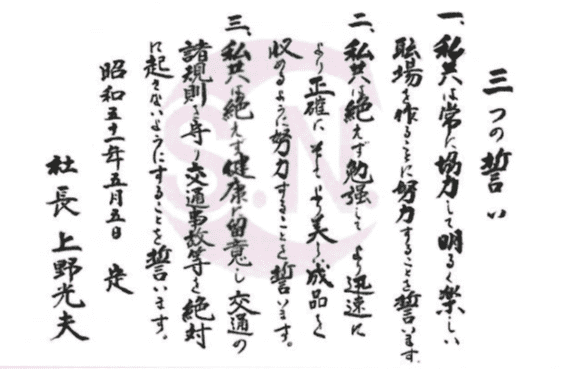 三つの誓い
一、私共は常に協力して明るく楽しい
職場を作ることに努力することを誓います
二、私共は絶えず勉強してより迅速に
より正確にそしてより美しい成品を
収めるように努力することを誓います。
三、私共は絶えず健康に留意し交通の
諸規則を守り交通事故等を絶対
に起さないようにすることを誓います。
昭和五十一年五月五日 定
社長 上野光夫
S.N.